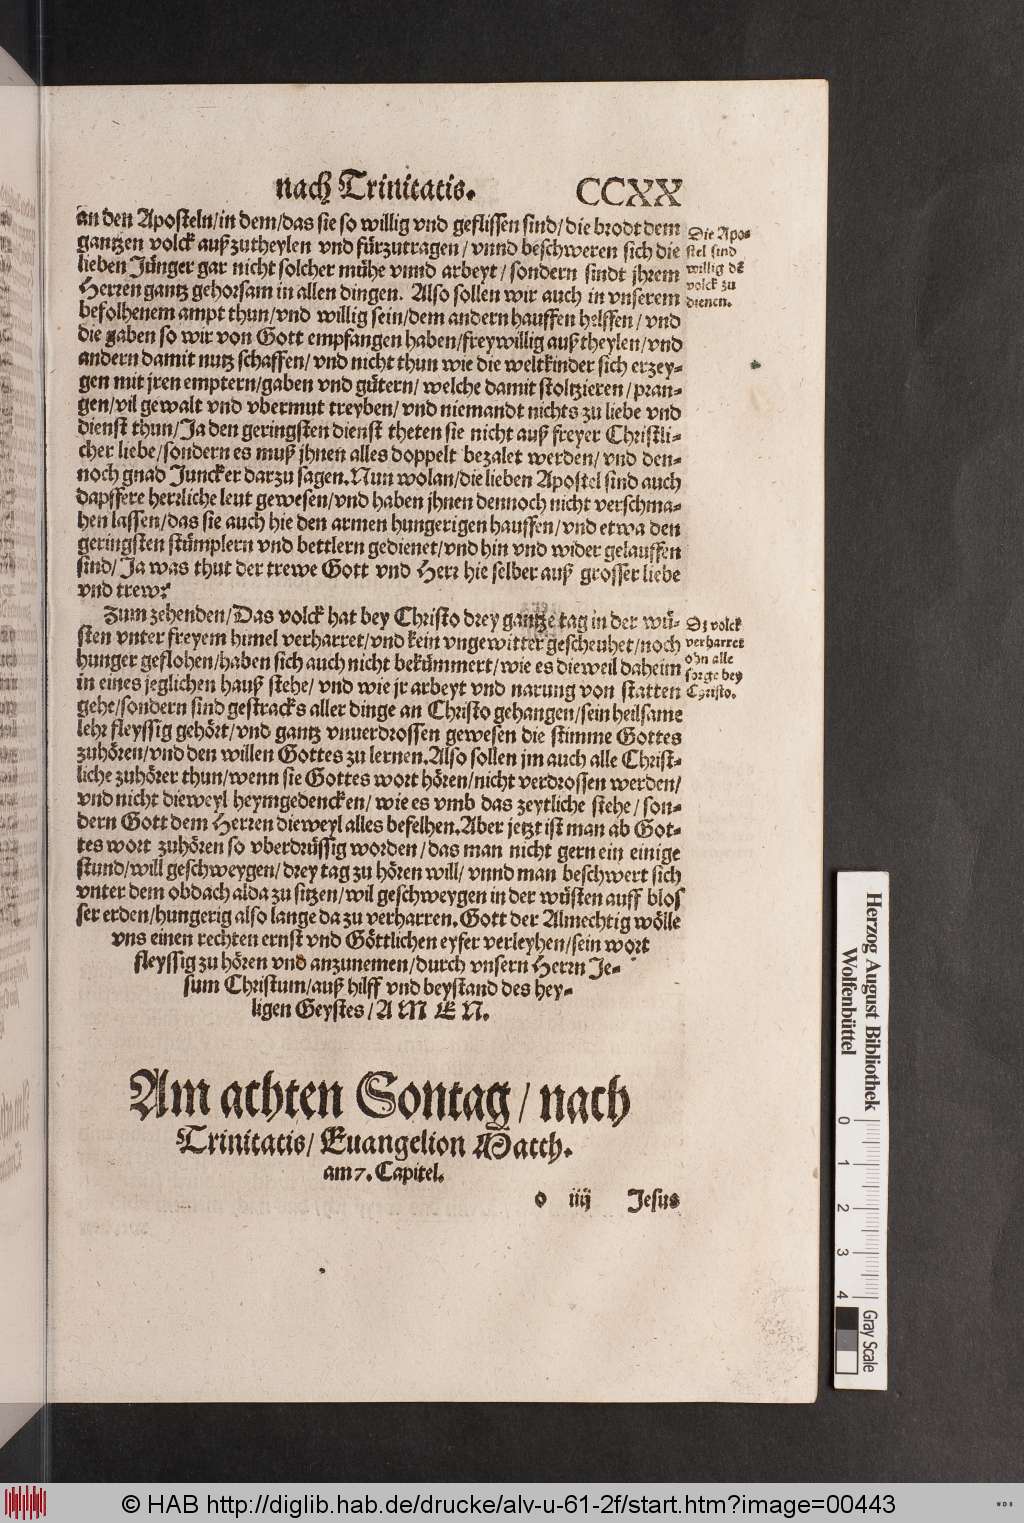 nach Trinitatis. CCXX
an den Aposteln/in dem/das sie so willig vnd geflissen sind/die brodt dem
gantzen volck außzutheylen vnd fürzutragen/ vnnd beschweren sich die
lieben Jünger gar nicht solcher mühe vnnd arbeyt/ sondern sindt jhrem
Herren gantz gehorsam in allen dingen. Also sollen wir auch in vnserem
befolhenem ampt thun/vnd willig sein/dem andern hauffen helffen/ vnd
die gaben so wir von Gott empfangen haben/freywillig außtheylen/vnd
andern damit nutz schaffen/ vnd nicht thun wie die weltkinder sich erzey-
gen mit jren emptern/gaben vnd gütern/ welche damit stoltzieren/pran-
gen/vil gewalt vnd vbermut treyben/ vnd niemandt nichts zu liebe vnd
dienst thun/Ja den geringsten dienst theten sie nicht auß freyer Christli-
cher liebe/sondern es muß jhnen alles doppelt bezalet werden/ vnd den-
noch gnad Juncker darzu sagen. Nun wolan/die lieben Apostel sind auch
dapffere herrliche leut gewesen/vnd haben jhnen dennoch nicht verschma-
hen lassen/das sie auch hie den armen hungerigen hauffen/vnd etwa den
geringsten stümplern vnd bettlern gedienet/vnd hin vnd wider gelauffen
sind/ Ja was thut der trewe Gott vnd Herr hie selber auß grosser liebe
vnd trew?
Die Apo-
stel sind
willig dẽ
volck zu
dienen.
Zum zehenden/Das volck hat bey Christo drey gantze tag in der wü-
sten vnter freyem himel verharret/vnd kein vngewitter gescheuhet/noch
hunger geflohen/haben sich auch nicht bekümmert/wie es dieweil daheim
in eines jeglichen hauß stehe/ vnd wie jr arbeyt vnd narung von statten
gehe/sondern sind gestracks aller dinge an Christo gehangen/sein heilsame
lehr fleyssig gehört/vnd gantz vnuerdrossen gewesen die stimme Gottes
zuhören/vnd den willen Gottes zu lernen. Also sollen jm auch alle Christ-
liche zuhörer thun/wenn sie Gottes wort hören/nicht verdrossen werden/
vnd nicht dieweyl heymgedencken/ wie es vmb das zeytliche stehe/ son-
dern Gott dem Herren dieweyl alles befelhen. Aber jetzt ist man ab Got-
tes wort zuhören so vberdrüssig worden/das man nicht gern ein einige
stund/will geschweygen/drey tag zu hören will/ vnnd man beschwert sich
vnter dem obdach alda zu sitzen/wil geschweygen in der wüsten auff blos
ser erden/hungerig also lange da zu verharren. Gott der Almechtig wölle
vns einen rechten ernst vnd Göttlichen eyfer verleyhen/sein wort
fleyssig zu hören vnd anzunemen/durch vnsern Herrn Je-
sum Christum/auß hilff vnd beystand des hey-
ligen Geystes/A M E N.
Dz volck
verharret
ohn alle
sorge bey
Christo.
Am achten Sontag/ nach
Trinitatis/ Euangelion Matth.
am 7. Capitel.
o iiij Jesus
Herzog August Bibliothek
Wolfenbüttel
0
1
2
3
4
Gray Scale
© HAB http://diglib.hab.de/drucke/alv-u-61-2f/start.htm?image=00443